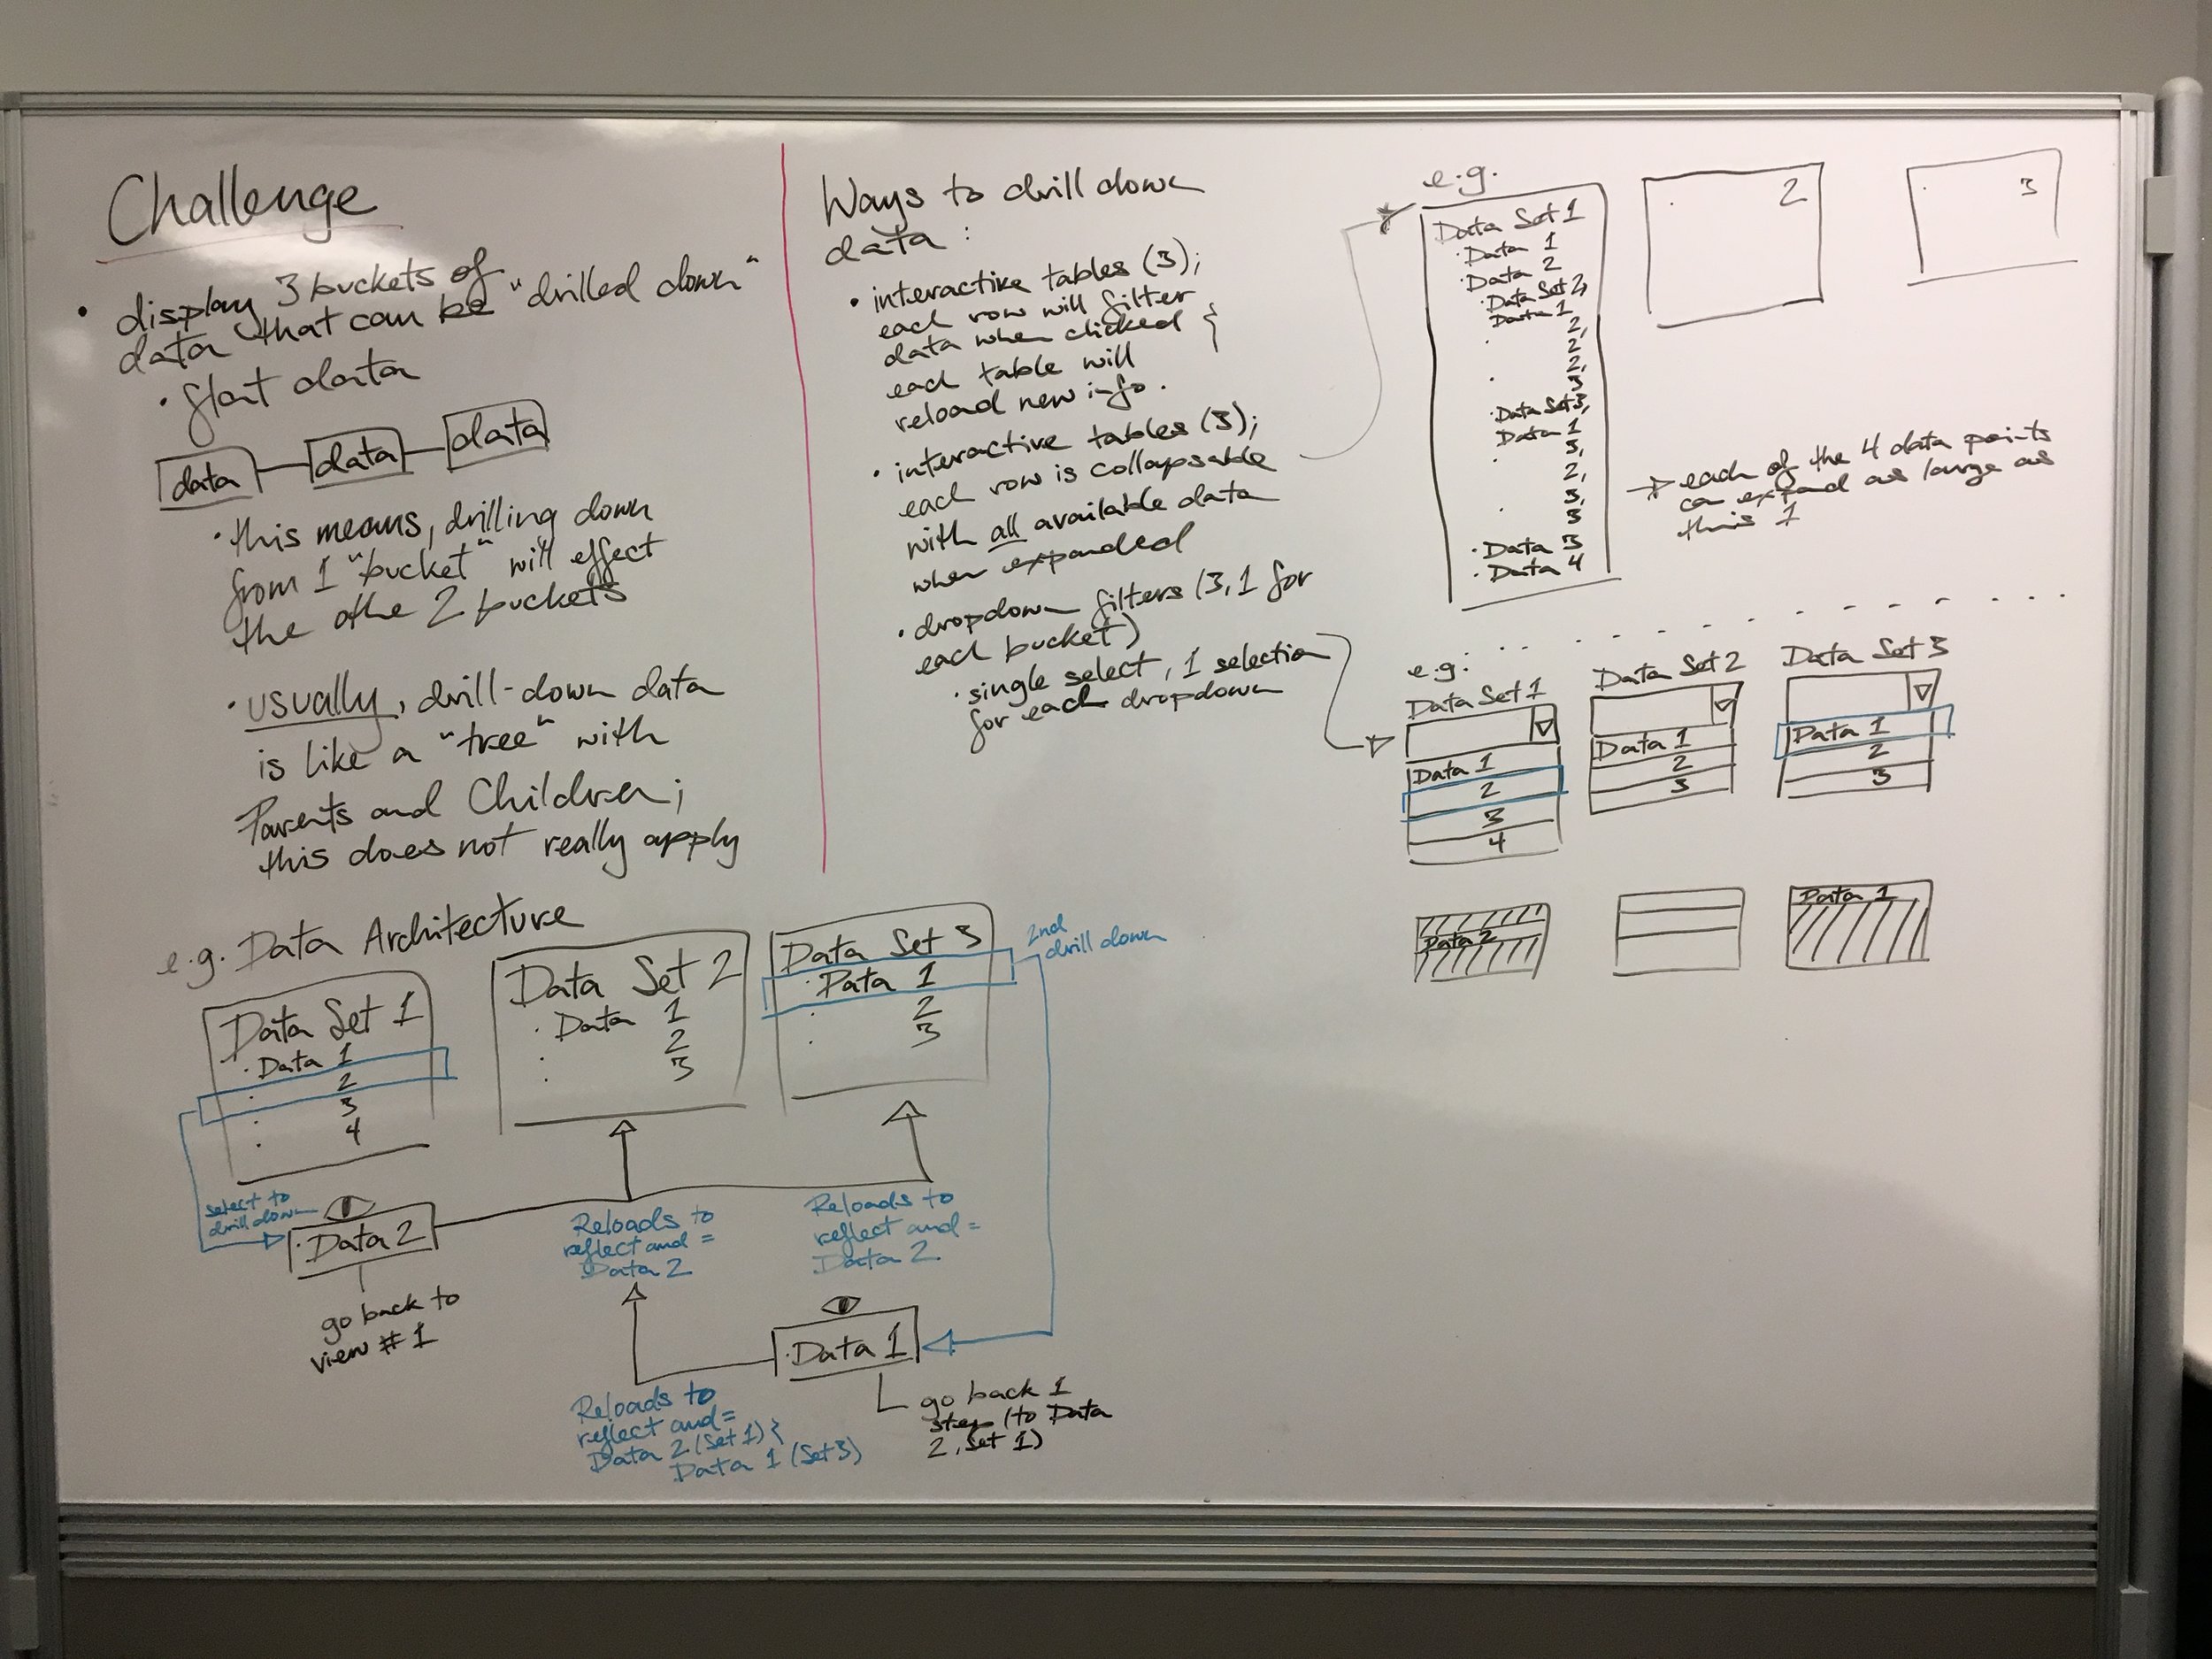 Challenge
• display 3 buckets of
data that can be "drilled down"
• flat data
data
data
data
• this means, drilling down
from 1 "bucket" will effect
the othe 2 buckets
• usually, drill-down data
is like a "tree" with
Parents and Children;
this does not really apply
e.g. Data Architecture
Data Set 1
• Data 1
• 2
• 3
• 4
Data Set 2
• Data 1
• 2
• 3
Data Set 3
• Data 1
• 2
• 3
2nd
drill down
select to
drill down
• Data 2
go back to
view # 1
Reloads to
reflect and =
Data 2
Reloads to
reflect and =
Data 2
• Data 1
go back 1
step (to Data
2, Set 1)
Reloads to
reflect and =
Data 2 (Set 1) &
Data 1 (Set 3)
Ways to drill down
data:
• interactive tables (3);
each row will filter
data when clicked &
each table will
reload new info.
• interactive tables (3);
each row is collapsable
with all available data
when expanded
• dropdown filters (3, 1 for
each bucket)
• single select, 1 selection
for each dropdown
e.g.
Data Set 1
• Data 1
• Data 2
• Data Set 2,
Data 1
2,
• 2
2,
• 3
• Data Set 3,
Data 1
3,
• 2,
3,
• 3
• Data 3
• Data 4
2
3
each of the 4 data points
can expand as large as
this 1
e.g.
Data Set 1
Data 1
2
3
4
Data Set 2
Data 1
2
3
Data Set 3
Data 1
2
3
Data 2
Data 1